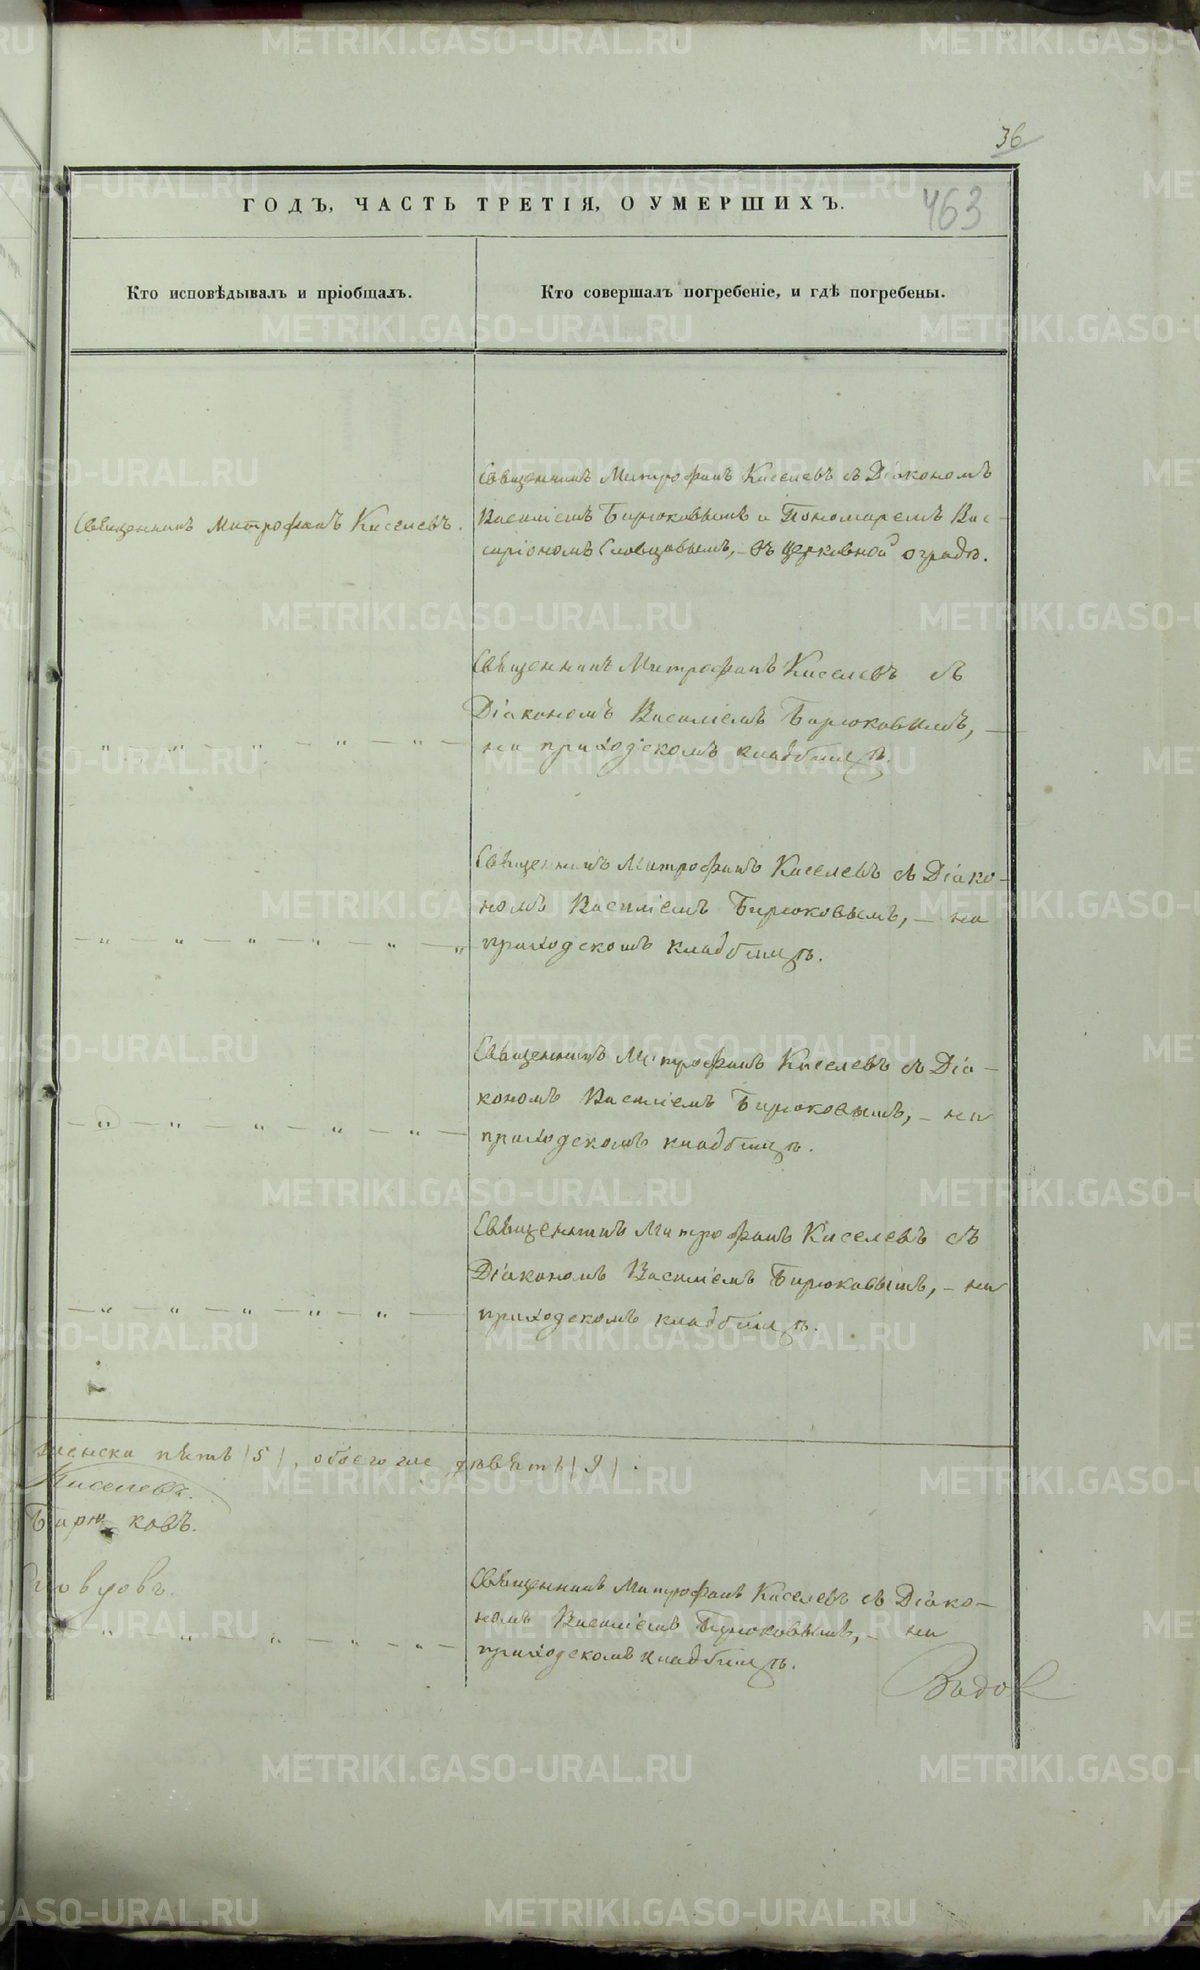 36
463
ГОДЪ, ЧАСТЬ ТРЕТІЯ, О УМЕРШИХЪ.
Кто исповѣдывалъ и пріобщалъ.
Кто совершалъ погребеніе, и гдѣ погребены.
Священникъ Митрофанъ Киселевъ.
Священникъ Митрофанъ Киселевъ съ Діакономъ
Василіемъ Бирюковымъ и Пономаремъ Вис-
саріономъ Словцовымъ, – въ церковной оградѣ.
— „ — „ — „ — „ — „ —
Священникъ Митрофанъ Киселевъ съ
Діакономъ Василіемъ Бирюковымъ, —
на приходскомъ кладбищѣ.
— „ — „ — „ — „ — „ — „
Священникъ Митрофанъ Киселевъ съ Діако-
номъ Василіемъ Бирюковымъ, – на
приходскомъ кладбищѣ.
— „ — „ — „ — „ — „ —
Священникъ Митрофанъ Киселевъ съ Діа-
кономъ Василіемъ Бирюковымъ, – на
приходскомъ кладбищѣ.
— „ — „ — „ — „ — „ —
Священникъ Митрофанъ Киселевъ съ
Діакономъ Василіемъ Бирюковымъ, – на
приходскомъ кладбищѣ.
женска пять /5/, обоего же девять /9/.
Киселевъ.
Бирюковъ.
Словцовъ.
„ — „ — „ — „ — „ —
Священникъ Митрофанъ Киселевъ съ Діако-
номъ Василіемъ Бирюковымъ, – на
приходскомъ кладбищѣ.
METRIKI.GASO-URAL.RU